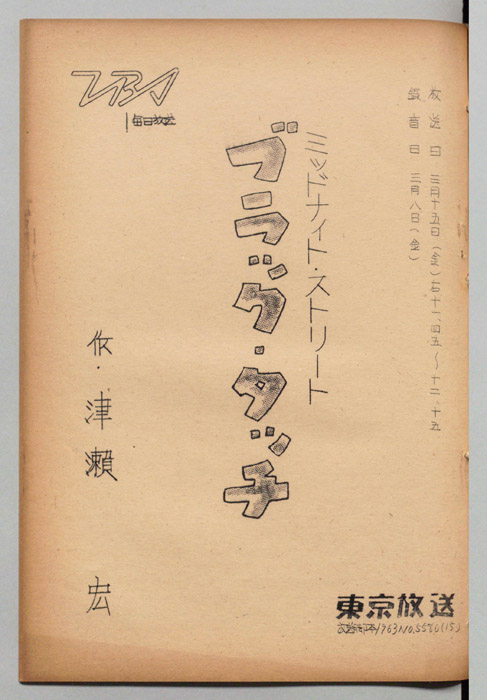 放送日 三月十五日(金)后十一、四五〜十二、十五
録音日 三月八日(金)
ミッドナイト・ストリート
ブラック・タッチ
TBS
毎日放送
作・津瀬 宏
東京放送
1963 No.5580(15)